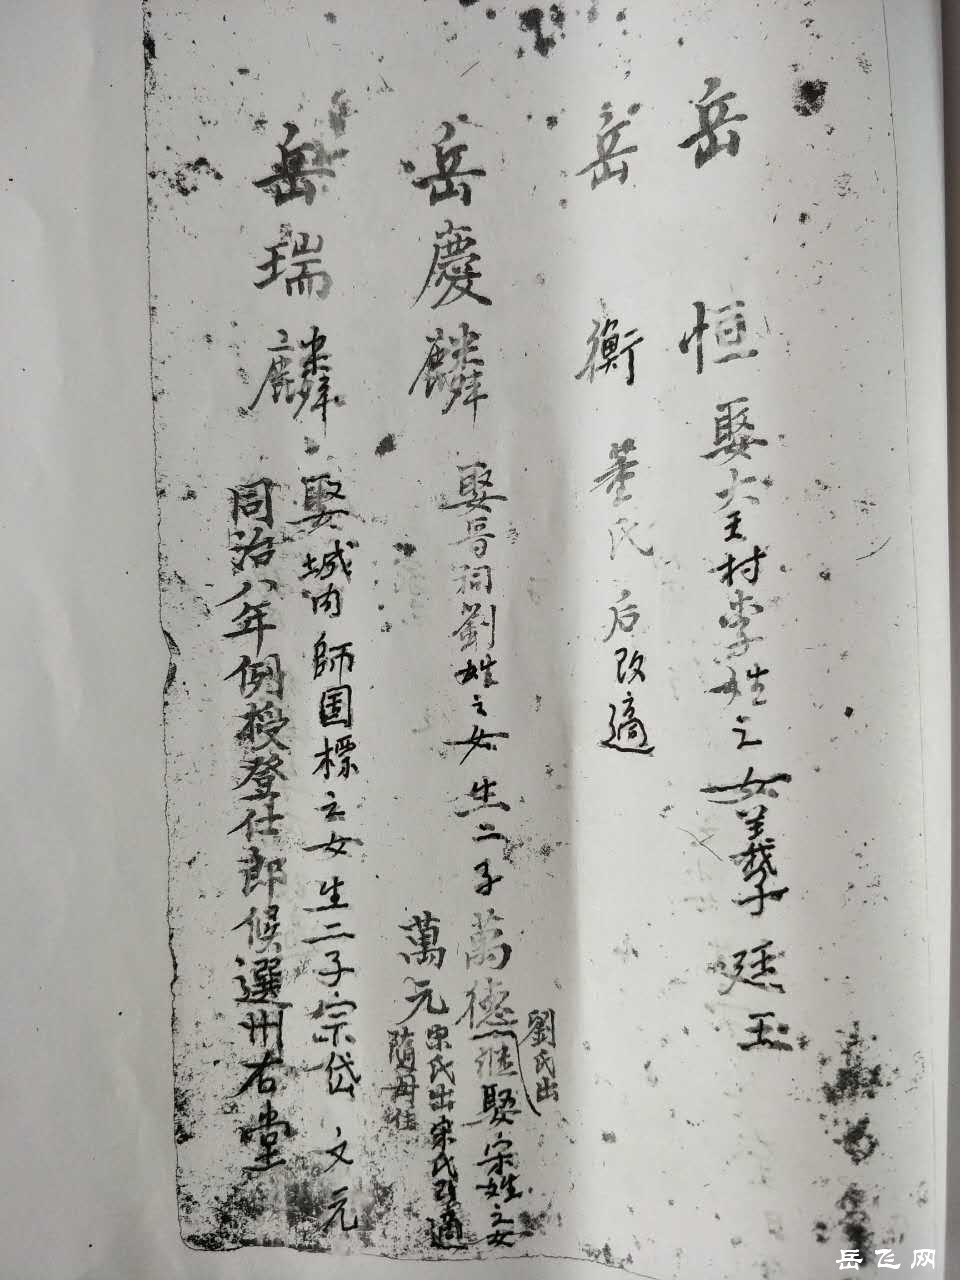 岳 恒 娶大王村李姓之女義子廷玉
岳 衡 董氏后改適
岳慶麟 娶晉祠劉姓之女生二子萬德継娶宋姓之女
劉氏出
萬元宋氏出宋氏改適
隨母往
岳瑞麟 娶城内師国標之女生二子宗岱 文元
同治八年例授登仕郎候選州右堂
岳飞网